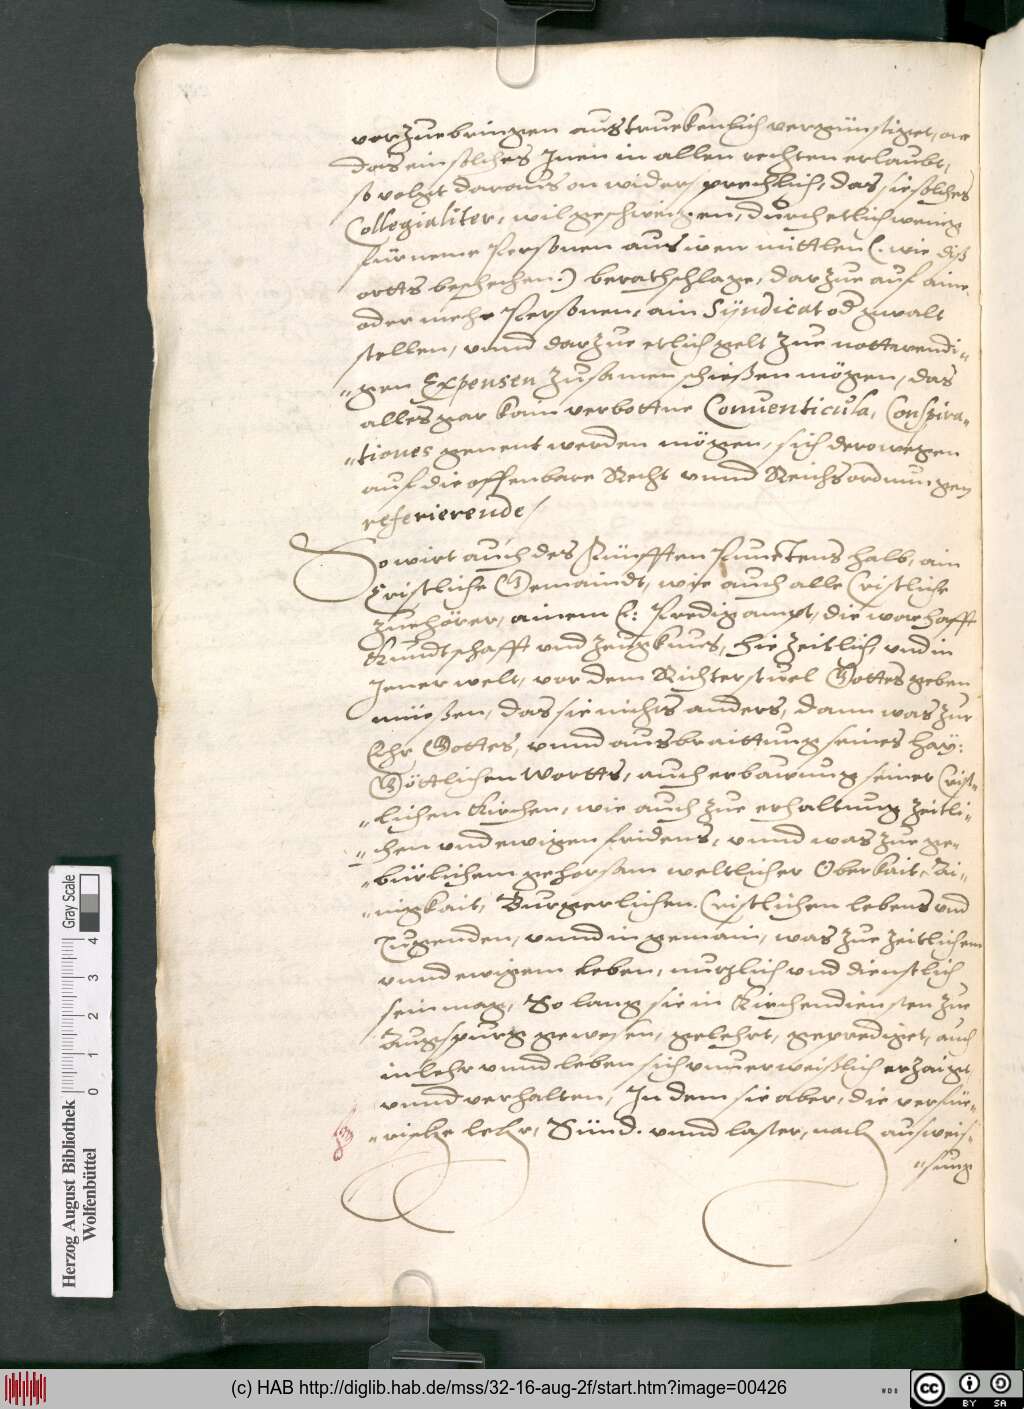 vorzuebringen austruckenlich vergünstiget, oder
das ein solches Inen in allen rechten erlaubt,
so volgt daraus on widersprechlich, das sie solches
Collegialiter, wil geschweigen, durch etlich wenig
fürneme Personen aus iren mittlen (. wie diß
ortts beschechen.) berathschlage, darzue auf aine
oder mehr Personen, ain Sÿndicat od gwalt
stellen, vnnd darzue etlich gelt zue nottwendi=
=gen Expensen zusamen schießen mögen, das
alles gar kain verbottne Conuenticula, Conspira=
=tiones genent werden mögen, sich derowegen
auf die offenbare Recht vnnd Reichsordnungen
referierende /
So wirt auch des Fünfften Punctens halb, ain
Cristliche Gemaindt, wie auch alle Cristliche
Zuehörer, ainem E: Predigampt, die warhafft
Kundtschafft vnd zeugknus, hie zeitlich vnd in
Jener welt, vor dem Richterstuel Gottes geben
müeßen, das sie nichts anders, dann was zur
Ehr Gottes, vnnd ausbraittung seines haÿ:
Göttlichen Wortts, auch erbawung seiner Crist=
=lichen Kirchen, wie auch zue erhaltung zeitli=
=chen vnd ewigen fridens, vnnd was zue ge=
=bürlichem gehorsam weltlicher Oberkait, Ai=
=nigkait, Burgerlichen. Cristlichen lebens vnd
Tugenden, vnnd in gemain, was zue zeitlichem
vnnd ewigem leben, nuzlich vnd dienstlich
sein mag, So lang sie in Kirchendiensten zue
Augspurg gewesen, gelehrt, geprediget, auch
in lehr vnnd leben sich vnuerweißlich erzaiget
vnnd verhalten, In dem sie aber, die verfüe=
=rische lehr, Sünd. vnnd laster, nach ausweis=
=sung
Herzog August Bibliothek
Wolfenbüttel
0 1 2 3 4
Gray Scale
(c) HAB http://diglib.hab.de/mss/32-16-aug-2f/start.htm?image=00426
WDB
cc BY SA